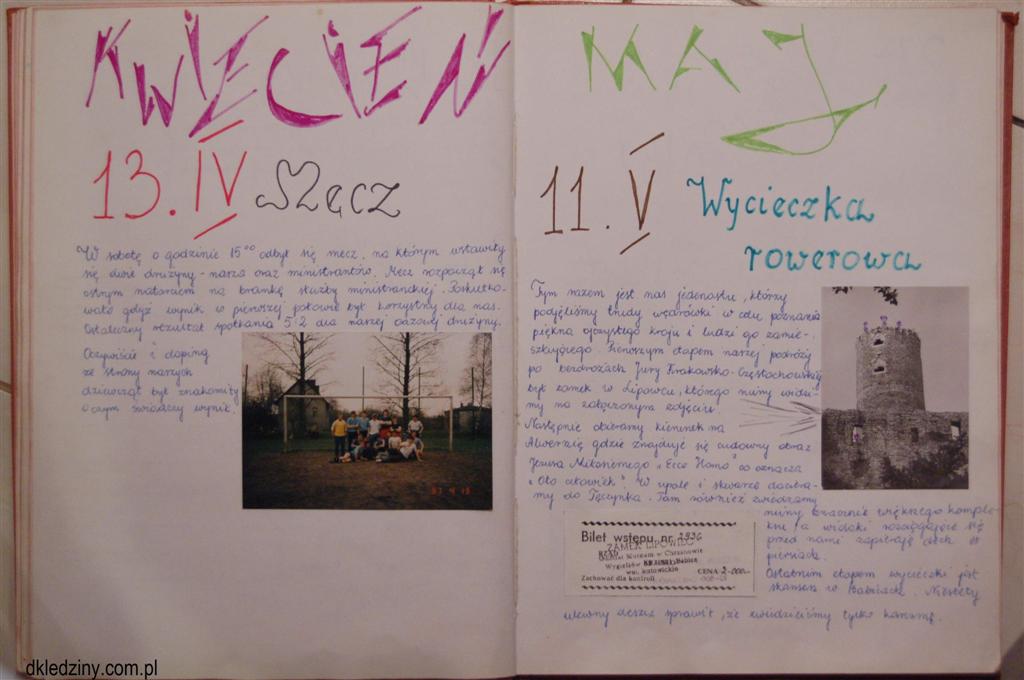 KWIECIEŃ
13. IV Mecz
W sobotę o godzinie 15⁰⁰ odbył się mecz, na którym wstawiły
się dwie drużyny - nasza oraz ministrantów. Mecz rozpoczął się
ostrym natarciem na bramkę służby ministranckiej. Poskutko-
wało gdyż wynik w pierwszej połowie był korzystny dla nas.
Ostateczny rezultat spotkania 5:2 dla naszej oazowej drużyny.
Oczywiście i doping
ze strony naszych
dziewcząt był znakomity
o czym świadczy wynik.
MAJ
11. V Wycieczka
rowerowa
Tym razem jest nas jedenastu, którzy
podjęliśmy trudy wędrówki w celu poznania
piękna ojczystego kraju i ludzi go zamie-
szkującego. Pierwszym etapem naszej podróży
po bezdrożach Jury Krakowsko-Częstochowskiej
był zamek w Lipowcu, którego ruiny widzi-
my na załączonym zdjęciu.
Następnie obieramy kierunek na
Alwernię gdzie znajduje się cudowny obraz
Jezusa Miłosiernego "Ecce Homo" co oznacza
"Oto człowiek". W upale i skwarze dociera-
my do Tęczynka. Tam również zwiedzamy
ruiny znacznie większego komple-
ksu, a widoki rozciągające się
przed nami zapierają dech w
piersiach.
Ostatnim etapem wycieczki jest
skansen w Babicach. Niestety
ulewny deszcz sprawił, że zwiedziliśmy tylko karczmę.
Bilet wstępu nr 2936
ZAMEK LIPOWIEC
Muzeum w Chrzanowie
Wygiełzów
woj. katowickie CENA 2-000-
Zachować dla kontroli
dkledziny.com.pl